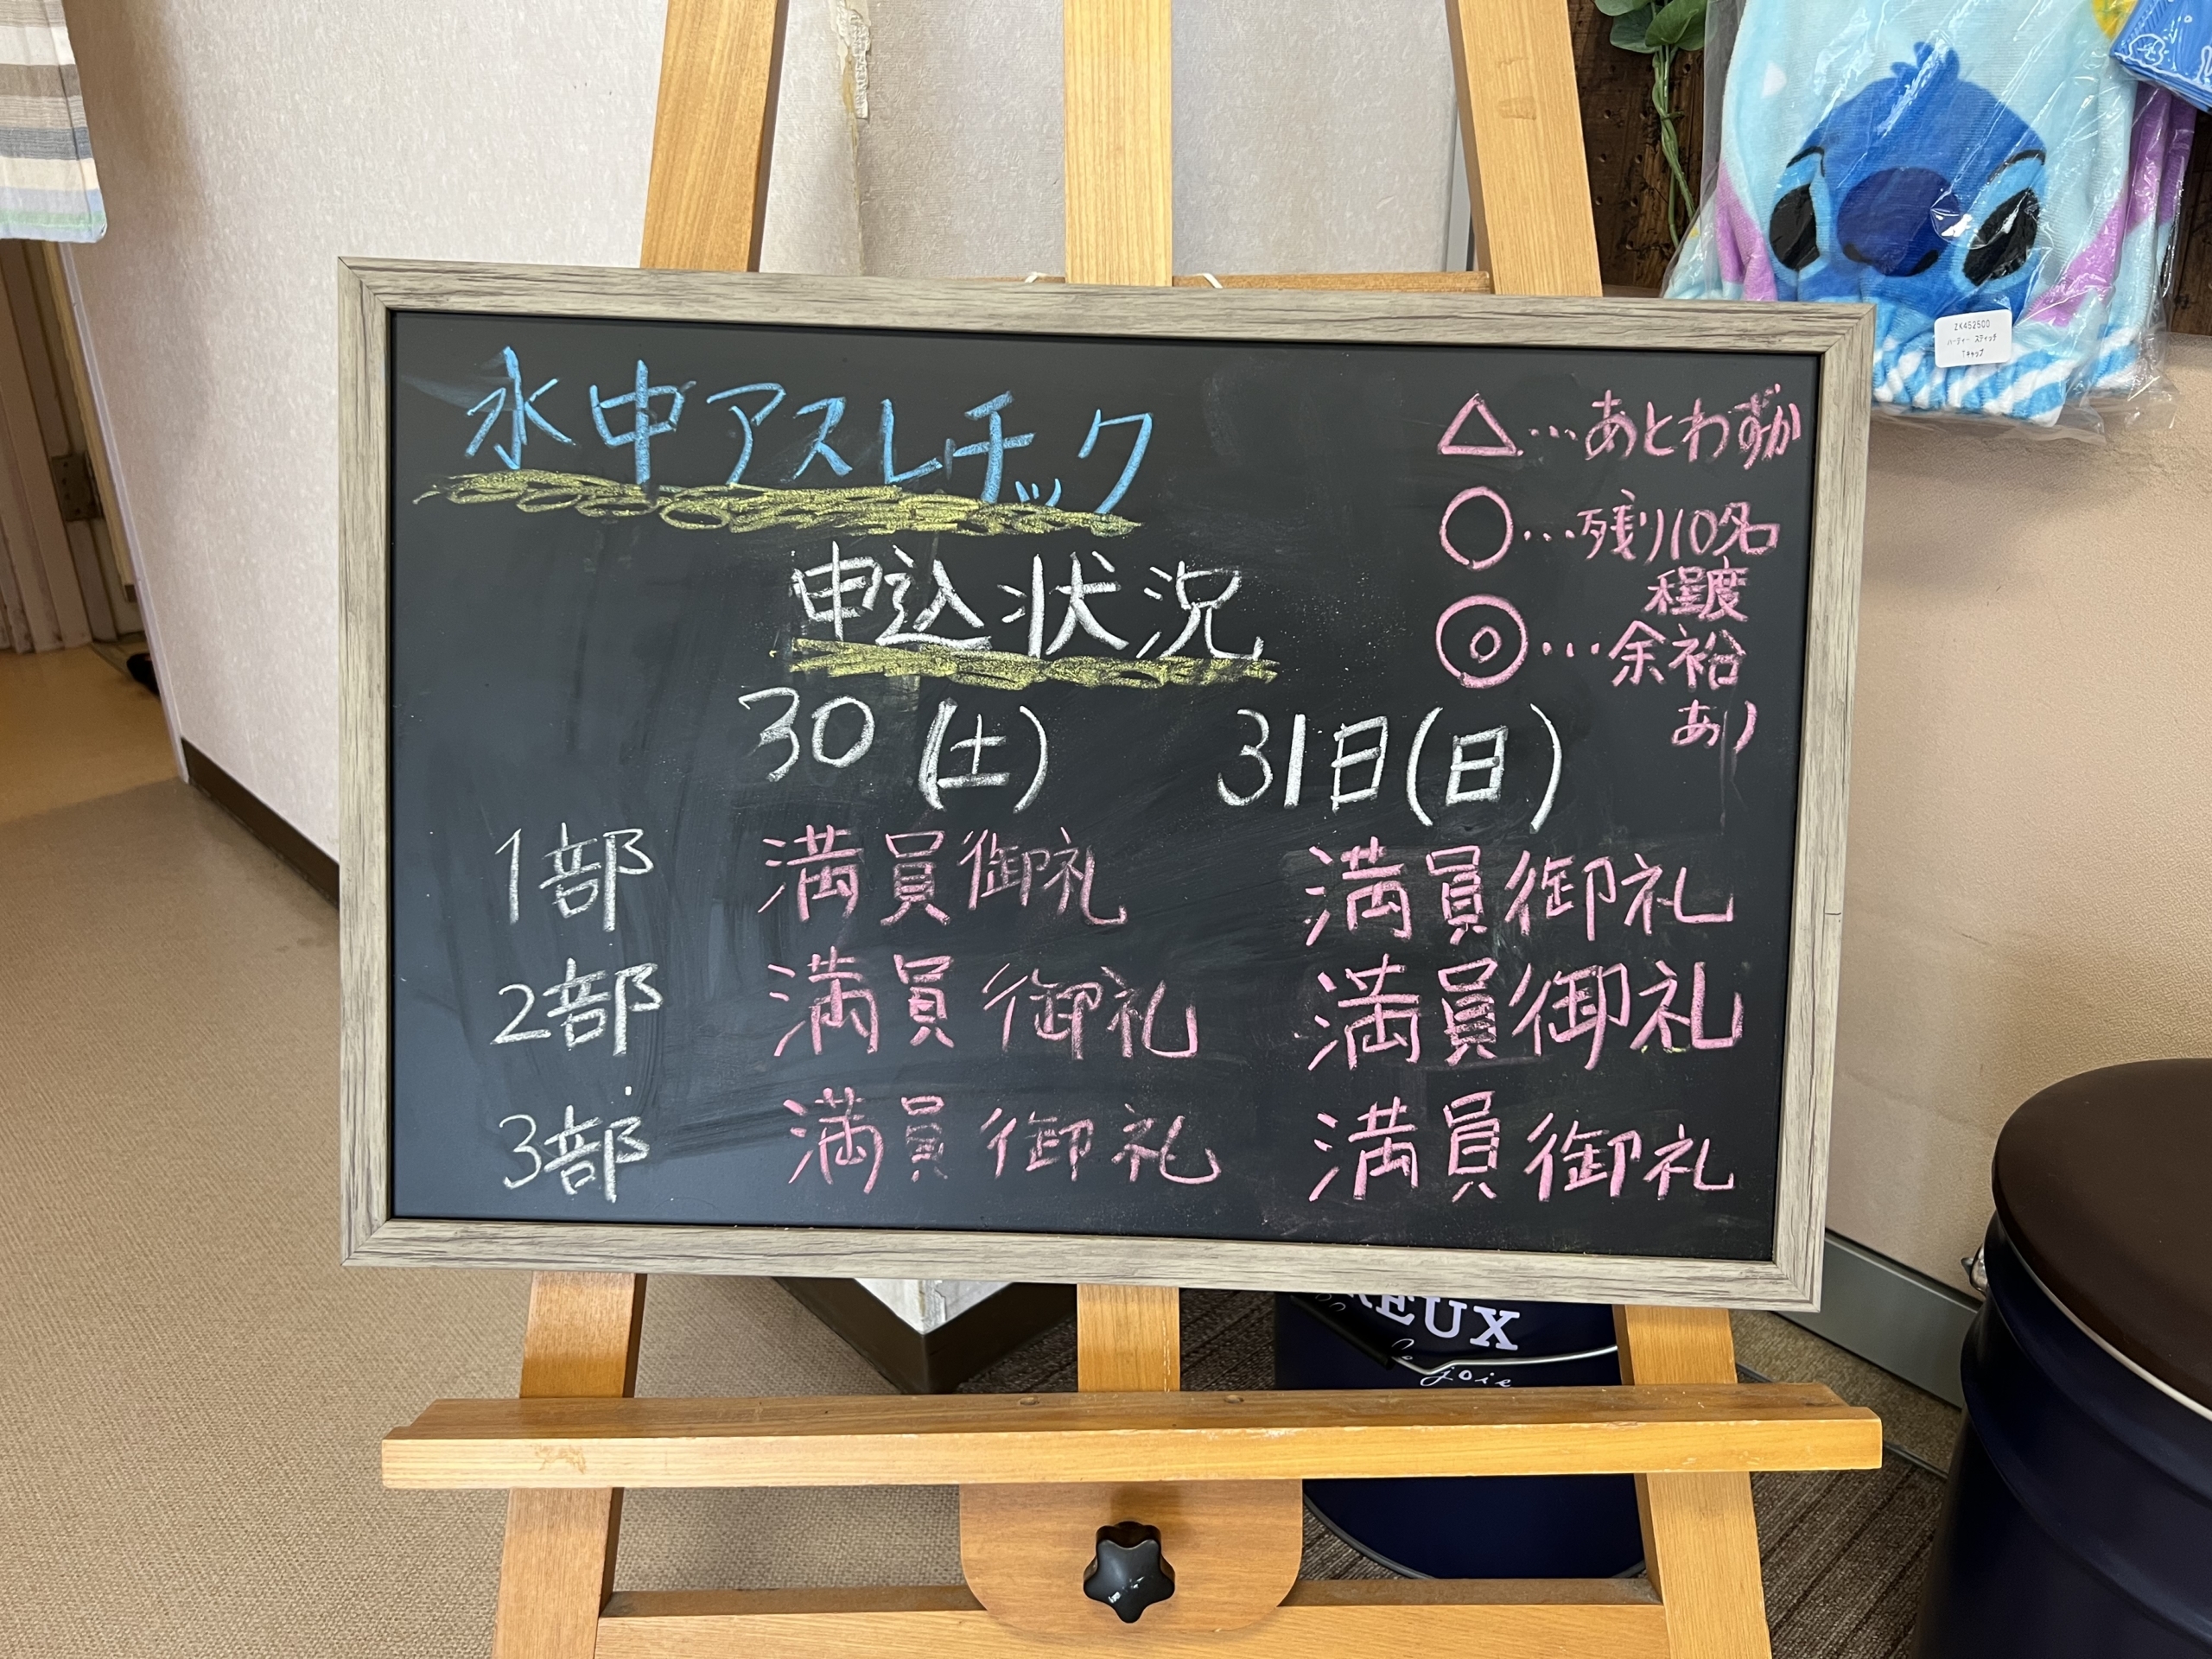 水中アスレチック
申込状況
△…あとわずか
○…残り10名
程度
◎…余裕
あり
30(土) 31日(日)
1部 満員御礼 満員御礼
2部 満員御礼 満員御礼
3部 満員御礼 満員御礼
ZK452500
スティッチ
Tキャップ
REUX
joie